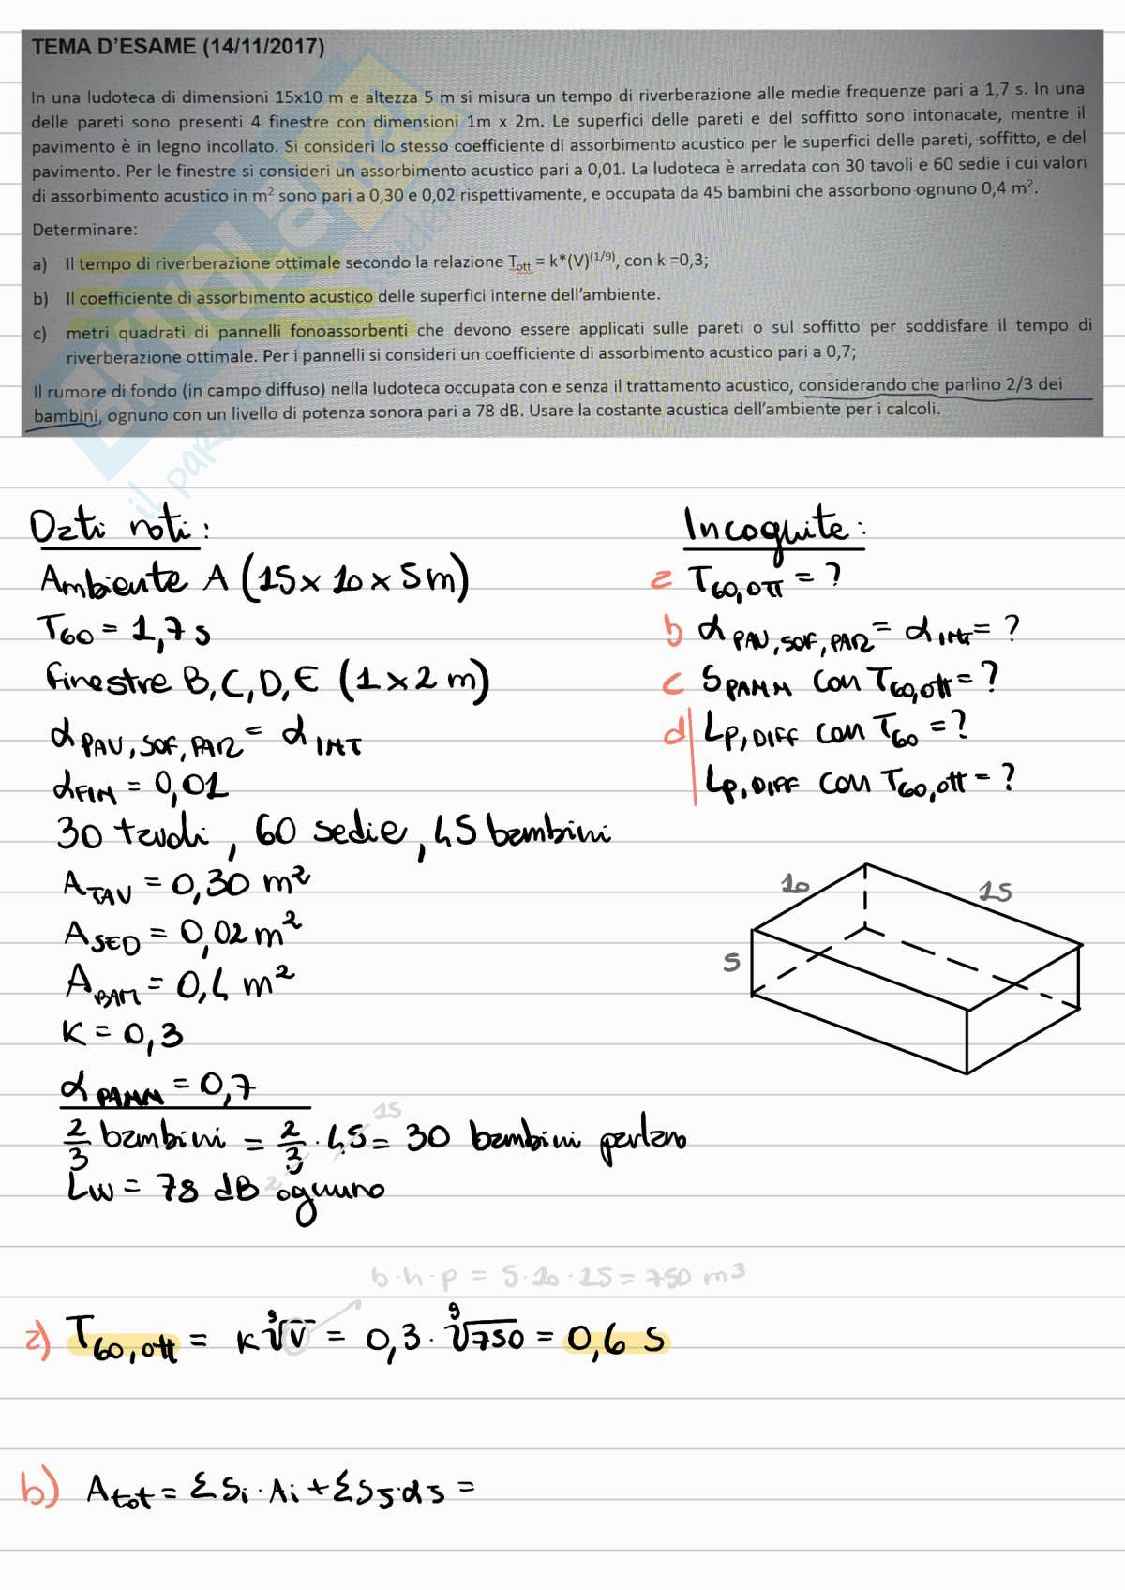 TEMA D'ESAME (14/11/2017)
In una ludoteca di dimensioni 15x10 m e altezza 5 m si misura un tempo di riverberazione alle medie frequenze pari a 1,7 s. In una
delle pareti sono presenti 4 finestre con dimensioni 1m x 2m. Le superfici delle pareti e del soffitto sono intonacate, mentre il
pavimento è in legno incollato. Si consideri lo stesso coefficiente di assorbimento acustico per le superfici delle pareti, soffitto, e del
pavimento. Per le finestre si consideri un assorbimento acustico pari a 0,01. La ludoteca è arredata con 30 tavoli e 60 sedie i cui valori
di assorbimento acustico in m² sono pari a 0,30 e 0,02 rispettivamente, e occupata da 45 bambini che assorbono ognuno 0,4 m².
Determinare:
a) Il tempo di riverberazione ottimale secondo la relazione Tott = k*(V)^(1/9), con k =0,3;
b) Il coefficiente di assorbimento acustico delle superfici interne dell'ambiente.
c) metri quadrati di pannelli fonoassorbenti che devono essere applicati sulle pareti o sul soffitto per soddisfare il tempo di
riverberazione ottimale. Per i pannelli si consideri un coefficiente di assorbimento acustico pari a 0,7;
Il rumore di fondo (in campo diffuso) nella ludoteca occupata con e senza il trattamento acustico, considerando che parlino 2/3 dei
bambini, ognuno con un livello di potenza sonora pari a 78 dB. Usare la costante acustica dell'ambiente per i calcoli.
Dati noti:
Ambiente A (15 x 10 x 5 m)
T60 = 1,7 s
Finestre B, C, D, E (1 x 2 m)
α PAV, SOF, PAR = α INT
α FIN = 0,01
30 tavoli, 60 sedie, 45 bambini
A TAV = 0,30 m²
A SED = 0,02 m²
A BAM = 0,4 m²
K = 0,3
α PANN = 0,7
2/3 bambini = 2/3 · 45 = 30 bambini parlano
15
Lw = 78 dB ognuno
Incognite:
a T60,ott = ?
b α PAV, SOF, PAR = α INT = ?
c S PANN con T60,ott = ?
d Lp, DIFF con T60 = ?
Lp, DIFF con T60,ott = ?
10
15
5
b·h·p = 5·10·15 = 750 m³
a) T60,ott = K ⁹√V = 0,3 · ⁹√750 = 0,6 s
b) Atot = ΣSi · Ai + ΣSs·αs =